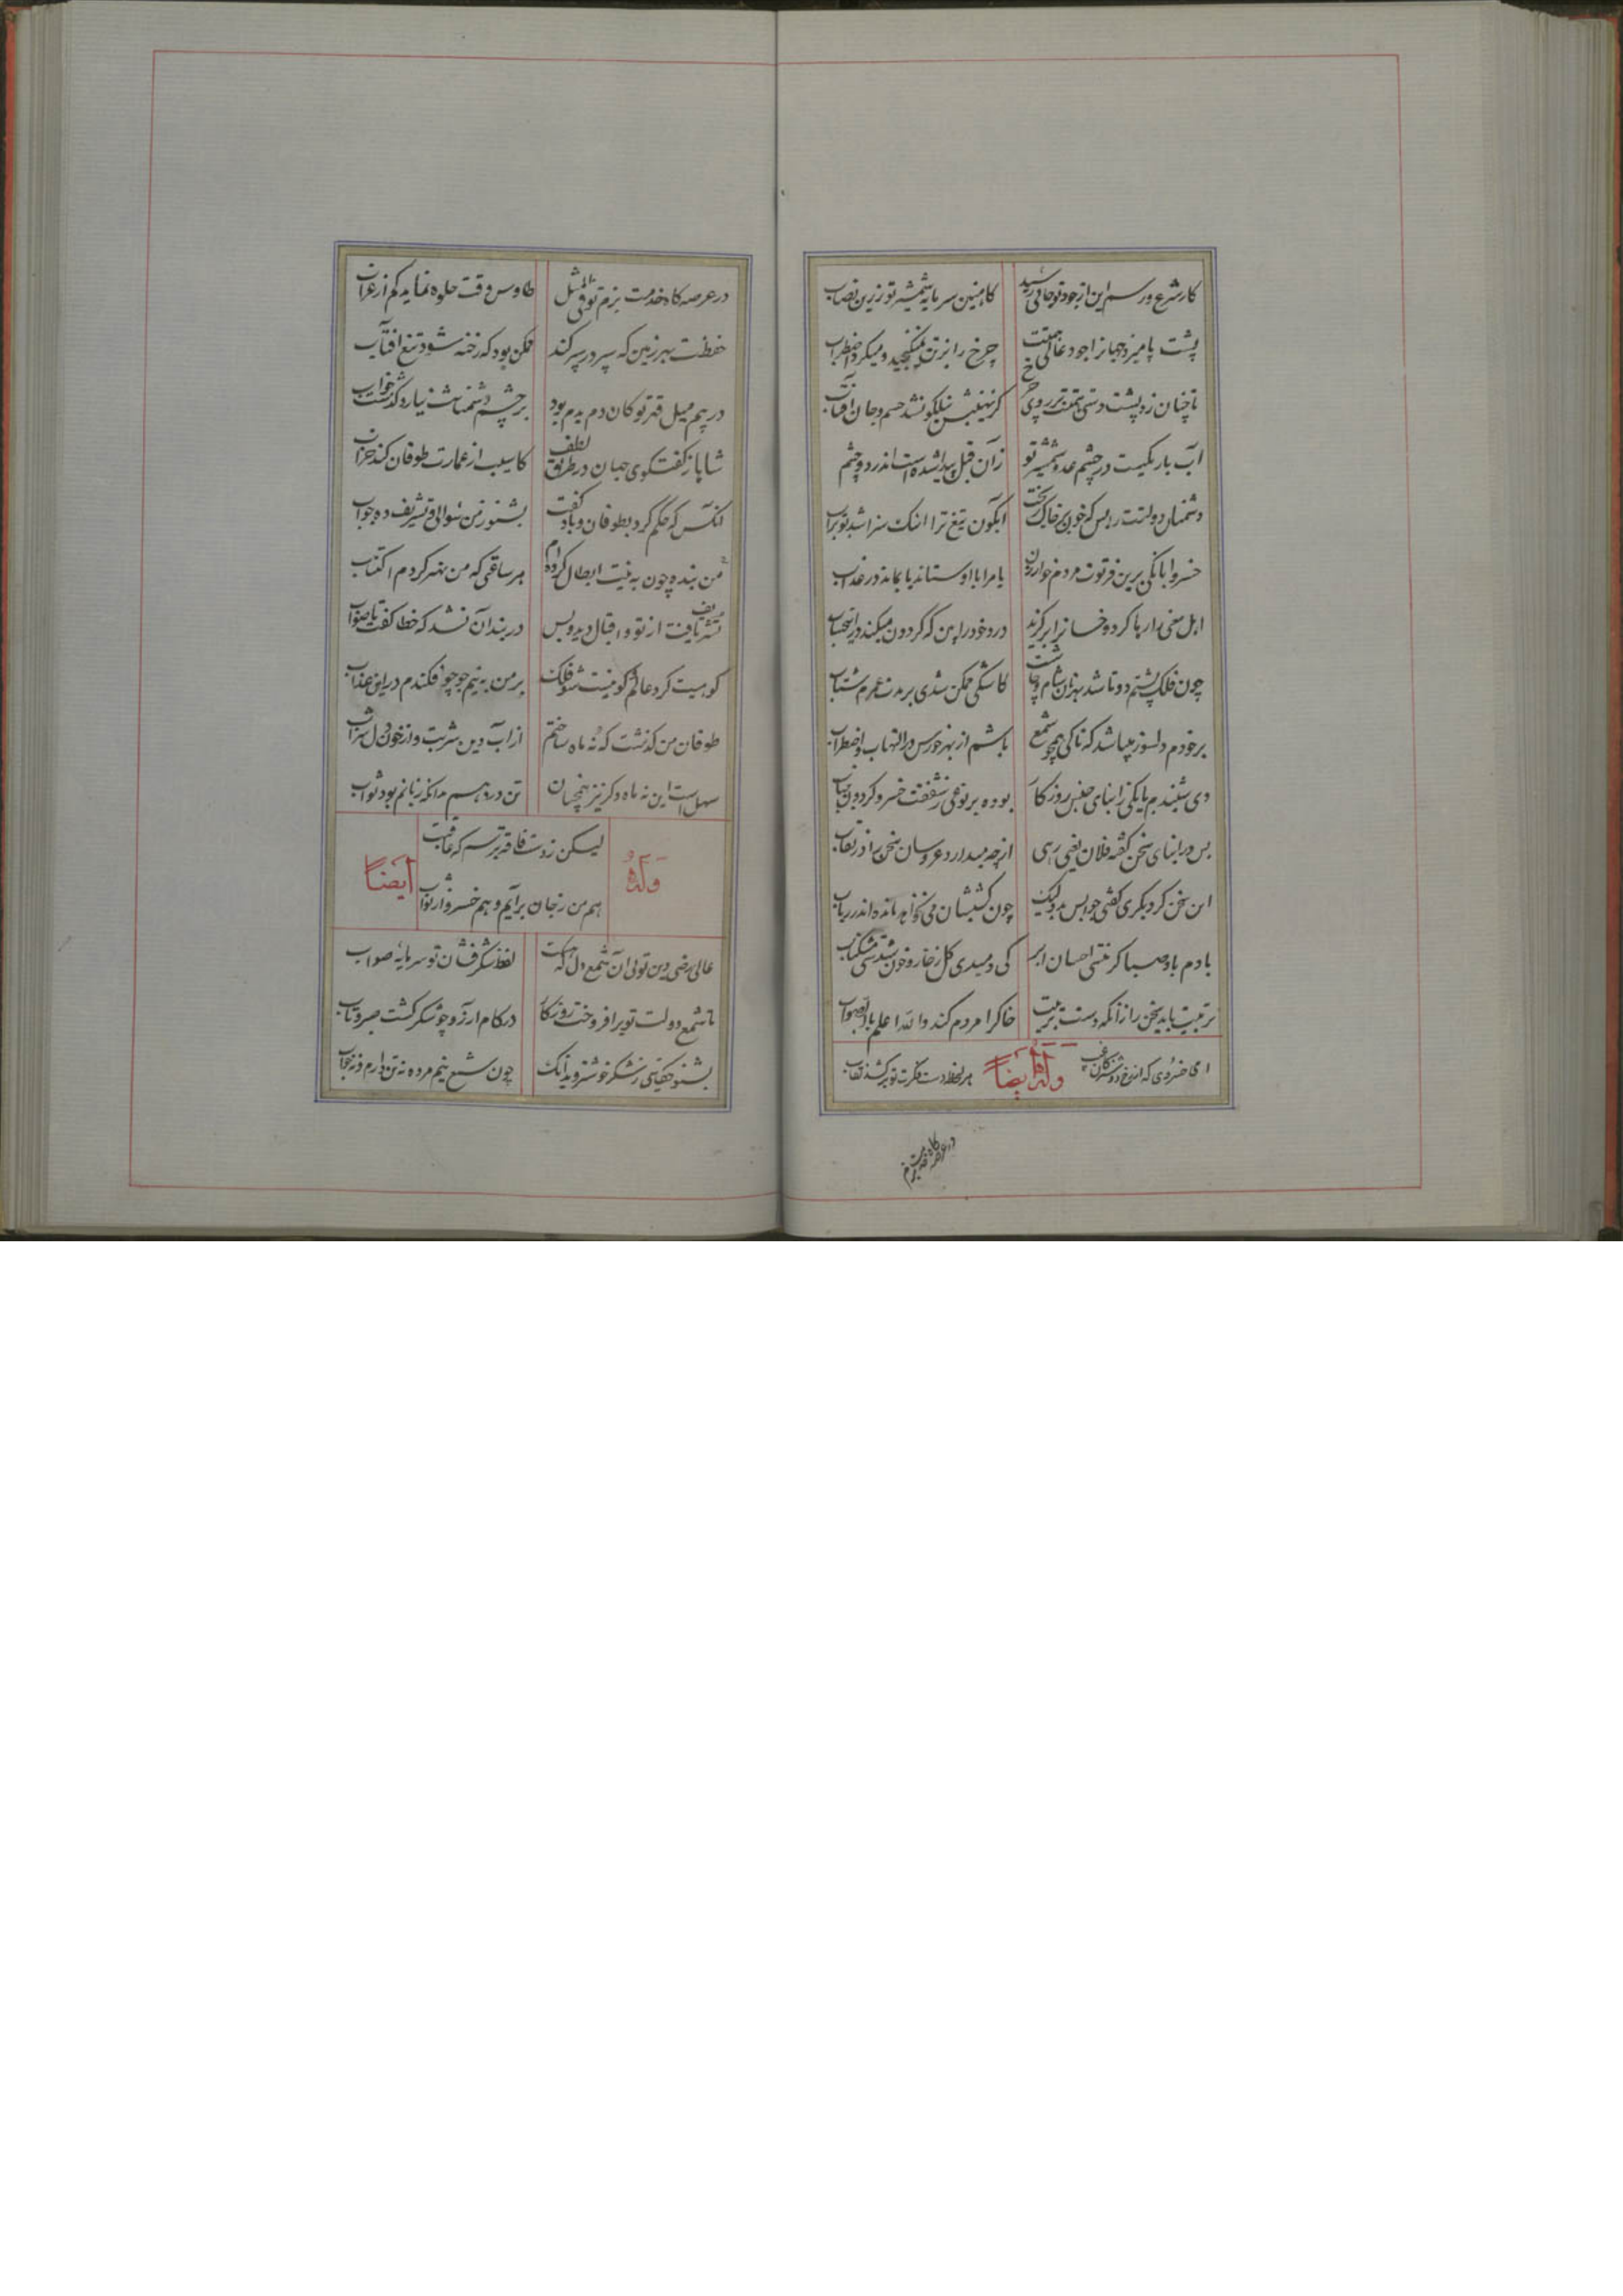 کار شرع و رسم این از جود تو جائی رسید   کاهنین سرمایه شمشیر تو زرین نصاب
پشت پا میزد جهانرا جود عالی همتت   چرخ را بر تن نمیکنجید و میکرد اضطراب
تا چنان زد پشت دستی همتت بر روی   کز نهیبش نیلگون شد جسم و جان آفتاب
آب باریکیست در چشم عدو شمشیر تو   زان قبل پیدا شده است اندر دو چشم
دشمنان دولتت را بس که خون بر خاک ریخت   آبگون تیغ ترا اینک سزا شد بو تراب
خسروا بانگی برین فرتوت مردم خوار زن   یا مرا با او ستاند یا بماند در عذاب
اهل معنی را رها کرد و خسانرا برگزید   درد خود را بین که گردون میکند در انتخاب
چون فلک پشتم دو تا شد بهر نان شام و چاشت   کاشکی ممکن شدی بر مدت عمرم شتاب
بر خودم دلسوز میباشد که تا کی همچو شمع   باشم از بهر خورش در التهاب و اضطراب
دی شنیدم با یکی ز ابنای جنس روزگار   بوده بر نوعی ز شفقت خسرو گردون جناب
پس در اثنای سخن گفته فلان یعنی رهی   از چه میدارد عروسان سخن را در نقاب
این سخن گر دیگری گفتی جوابش بد ولیک   چون کششان می نخواهد مانده اندر رباب
با دم باد صبا گر نیستی احسان ابر   کی دمیدی گل ز خار و خون شدی مشک ناب
تربیت باید سخن را زانکه دست تربیت   خاک را مردم کند والله اعلم بالصواب
وله ایضاً
ای خسروی که از رخ دوشیزگان غیب   هر لحظه دست فکرت تو برکشد نقاب
در عرصه گاه خدمت بزم
در عرصه گاه خدمت بزم تو فی المثل   طاوس وقت جلوه نماید کم از غراب
حفظت بهر زمین که سپر در سپر کند   ممکن بود که رخنه شود تیغ آفتاب
در بیم میل قهر تو کان دم بدم بود   بر چشم دشمنانت نیارد گذشت خواب
شاها ز گفتگوی جهان در طریق لطف   کاسیب از عمارت طوفان کند خراب
آنکس که حکم کرد بطوفان و باد گفت   بشنو ز من سوالی و تشریف ده جواب
من بنده چون به نیت ابطال کرده ام   هر ساقمی که من بهنر کردم اکتساب
تشریف یافت از تو و اقبال دید و بس   در بند آن نشد که خطا گفت یا صواب
گو هیست گرد عالم گو نیست شو فلک   بر من به نیم جو چو فکندم در این عذاب
طوفان من گذشت که نه ماه ساختم   از آب دیده شربت و از خون دل شراب
سهل است این نه ماه دگر نیز همچنان   تن در دهم بدانکه زبانم بود ثواب
وله
لیکن ز دست فاقه بترسم که عاقبت
هم من ز جان برآیم و هم خسرو از ثواب
ایضاً
عالی رضی دین توئی آن شمع دل که هست   لفظ شکر فشان تو سرمایه صواب
تا شمع دولت تو برافروخت روزگار   در کام آرزو چو شکر گشت صبر و تاب
بشنو حکایتی ز شکر خوشتر و بدانک   چون شمع نیم مرده نه تن دارم و نه خواب